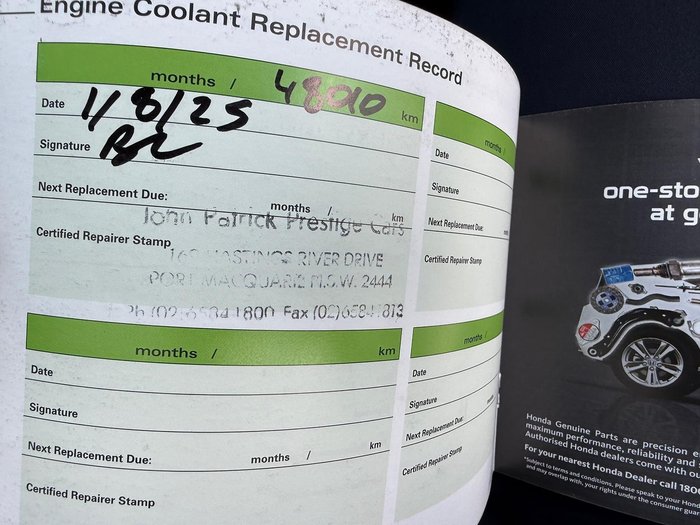 Engine Coolant Replacement Record
months / 48010 km
Date 1/8/25
Signature
Next Replacement Due: months / km
Certified Repairer Stamp
John Patrick Prestige Cars
HASTINGS RIVER DRIVE
PORT MACQUARIE N.S.W. 2444
Fax
months / km
Date
Signature
Next Replacement Due: months / km
Certified Repairer Stamp
months /
Date
Signature
Next Replacement Due: months
Certified Repairer Stamp
months /
Date
Signature
Next Replacement Due: months
Certified Repairer Stamp
one-sto
at g
Honda Genuine Parts are precision e
maximum performance, reliability and
Authorised Honda dealers come with ou
For your nearest Honda Dealer call 1800
*Subject to terms and conditions. Please speak to your Honda
and may overlap with, your rights under the consumer guar